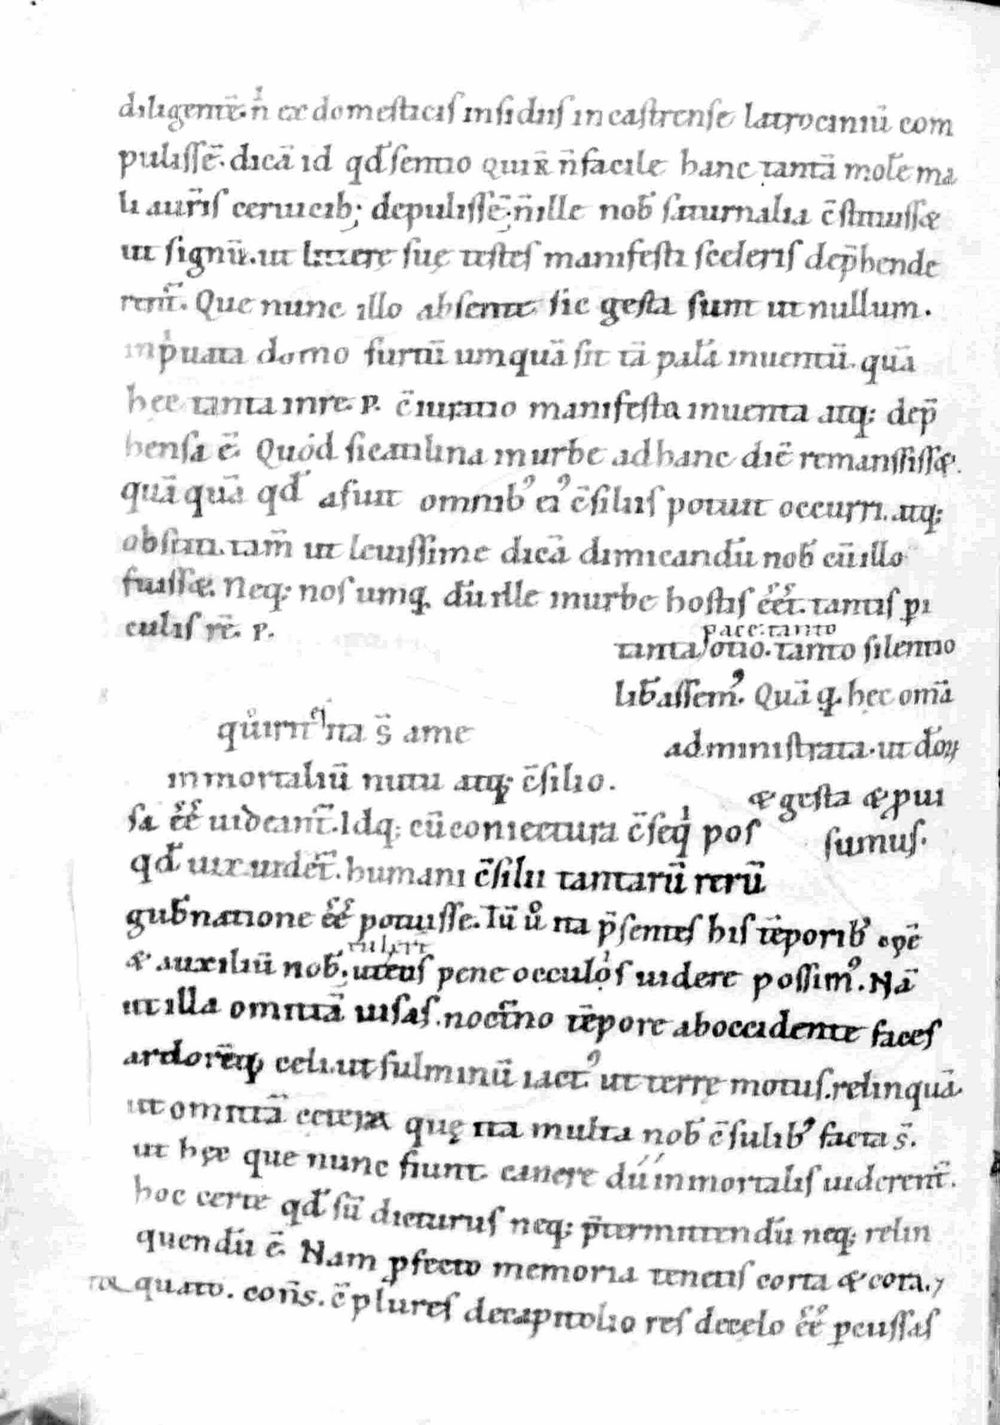 diligentē. n̄ ex domesticis insidiis in castrense latrociniū com
pulissē. dicā id qđ sentio quiꝶ n̄ facile hanc tantā molē ma
li a ur̄is ceruicib; depulissē. n̄ ille nob̄ saturnalia c̄stituissæ
ut signū. ut littere suę testes manifesti sceleris dep̄hende
rent̄. Que nunc illo absente sic gesta sunt ut nullum.
in pͥuata domo furtū umquā sit tā palā inuentū. quā
hec tanta in re. p. c̄iuratio manifesta inuenta atq; dep̄
hensa ē. Quod si catilina in urbe ad hanc diē remansissæ.
quā quā qđ a fuit omnibꝰ eiꝰ c̄siliis potuit occurri. atq;
obstiti. tam̄ ut leuissime dicā dimicandū nob̄ cū illo
fuissæ. Neq; nos umq̨ dū ille in urbe hostis ēēt. tantis pͥ
culis rē. p.
tanta pace: tanto otio. tanto silentio
lib̄assemꝰ. Quā q̨ hec om̄a
quͦirit̄ ita s̄ a me
administrata. ut đoꝝ
inmortaliū nutu atq; c̄silio.
æ gesta æ ꝓui
sa ēē uideant̄. Idq; cū coniectura c̄seqͥ pos
sumus.
qđ uix uidet̄. humani c̄silii tantarū rerū
gub̄natione ēē potuisse. Tū uͦ ita p̄sentes his tēporib̄ opē
æ auxiliū nob̄. tulert̄ ut eos pene occulos uidere possimꝰ. Nā
ut illa omittā uisas. noct̄no tēpore ab occidente faces
ardorēq̨ celi. ut fulminū iactꝰ ut terrę motus. relinquā.
ut omittā cetera quę ita multa nob̄ c̄sulibꝰ facta s̄.
ut hęc que nunc fiunt. canere dii inmortalis uiderent̄.
hoc certe qđ sū dicturus neq; p̄termittendū neq; relin
quendū ē. Nam ꝓfecto memoria tenetis corta æ cota. ⁊
tor quato. cons̄. c̄plures de capitolio res de cęlo ēē ꝑcussas